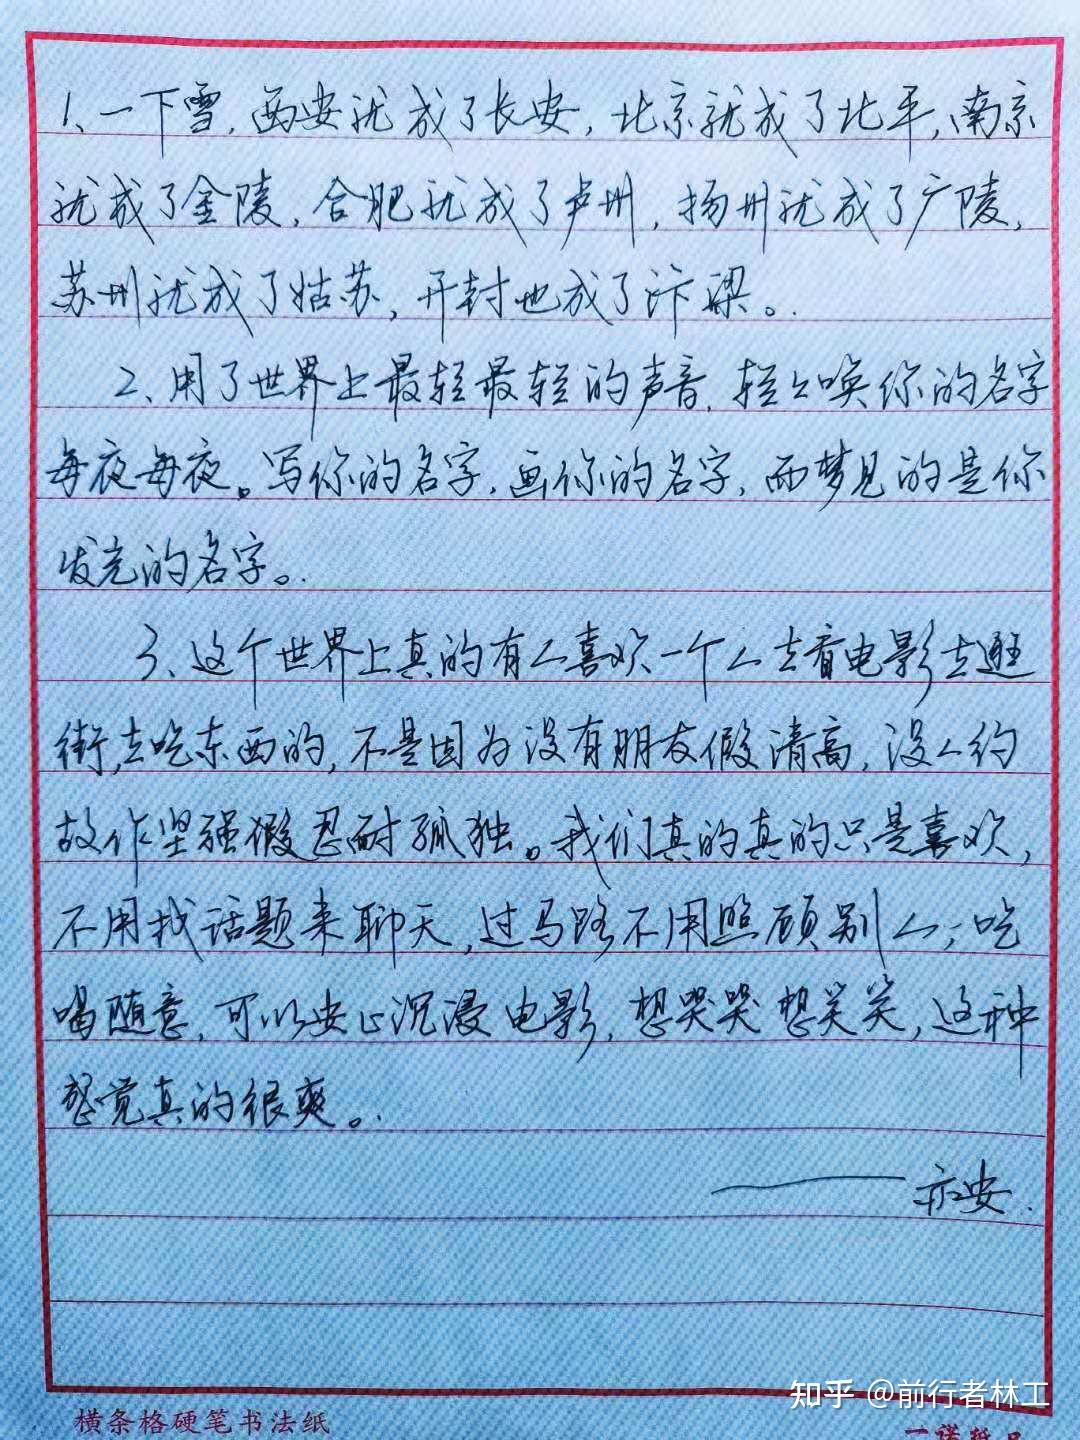 1、一下雪,西安就成了长安,北京就成了北平,南京
就成了金陵,合肥就成了庐州,扬州就成了广陵,
苏州就成了姑苏,开封也成了汴梁。
2、用了世界上最轻最轻的声音,轻轻唤你的名字
每夜每夜。写你的名字,画你的名字,而梦见的是你
发光的名字。
3、这个世界上真的有人喜欢一个人去看电影去逛
街,去吃东西的,不是因为没有朋友假清高,没人约
故作坚强假忍耐孤独。我们真的真的只是喜欢,
不用找话题来聊天,过马路不用照顾别人;吃
喝随意,可以安心沉浸电影,想哭哭想笑笑,这种
感觉真的很爽。
——亦安.
知乎 @前行者林工
横条格硬笔书法纸
一诺纸品